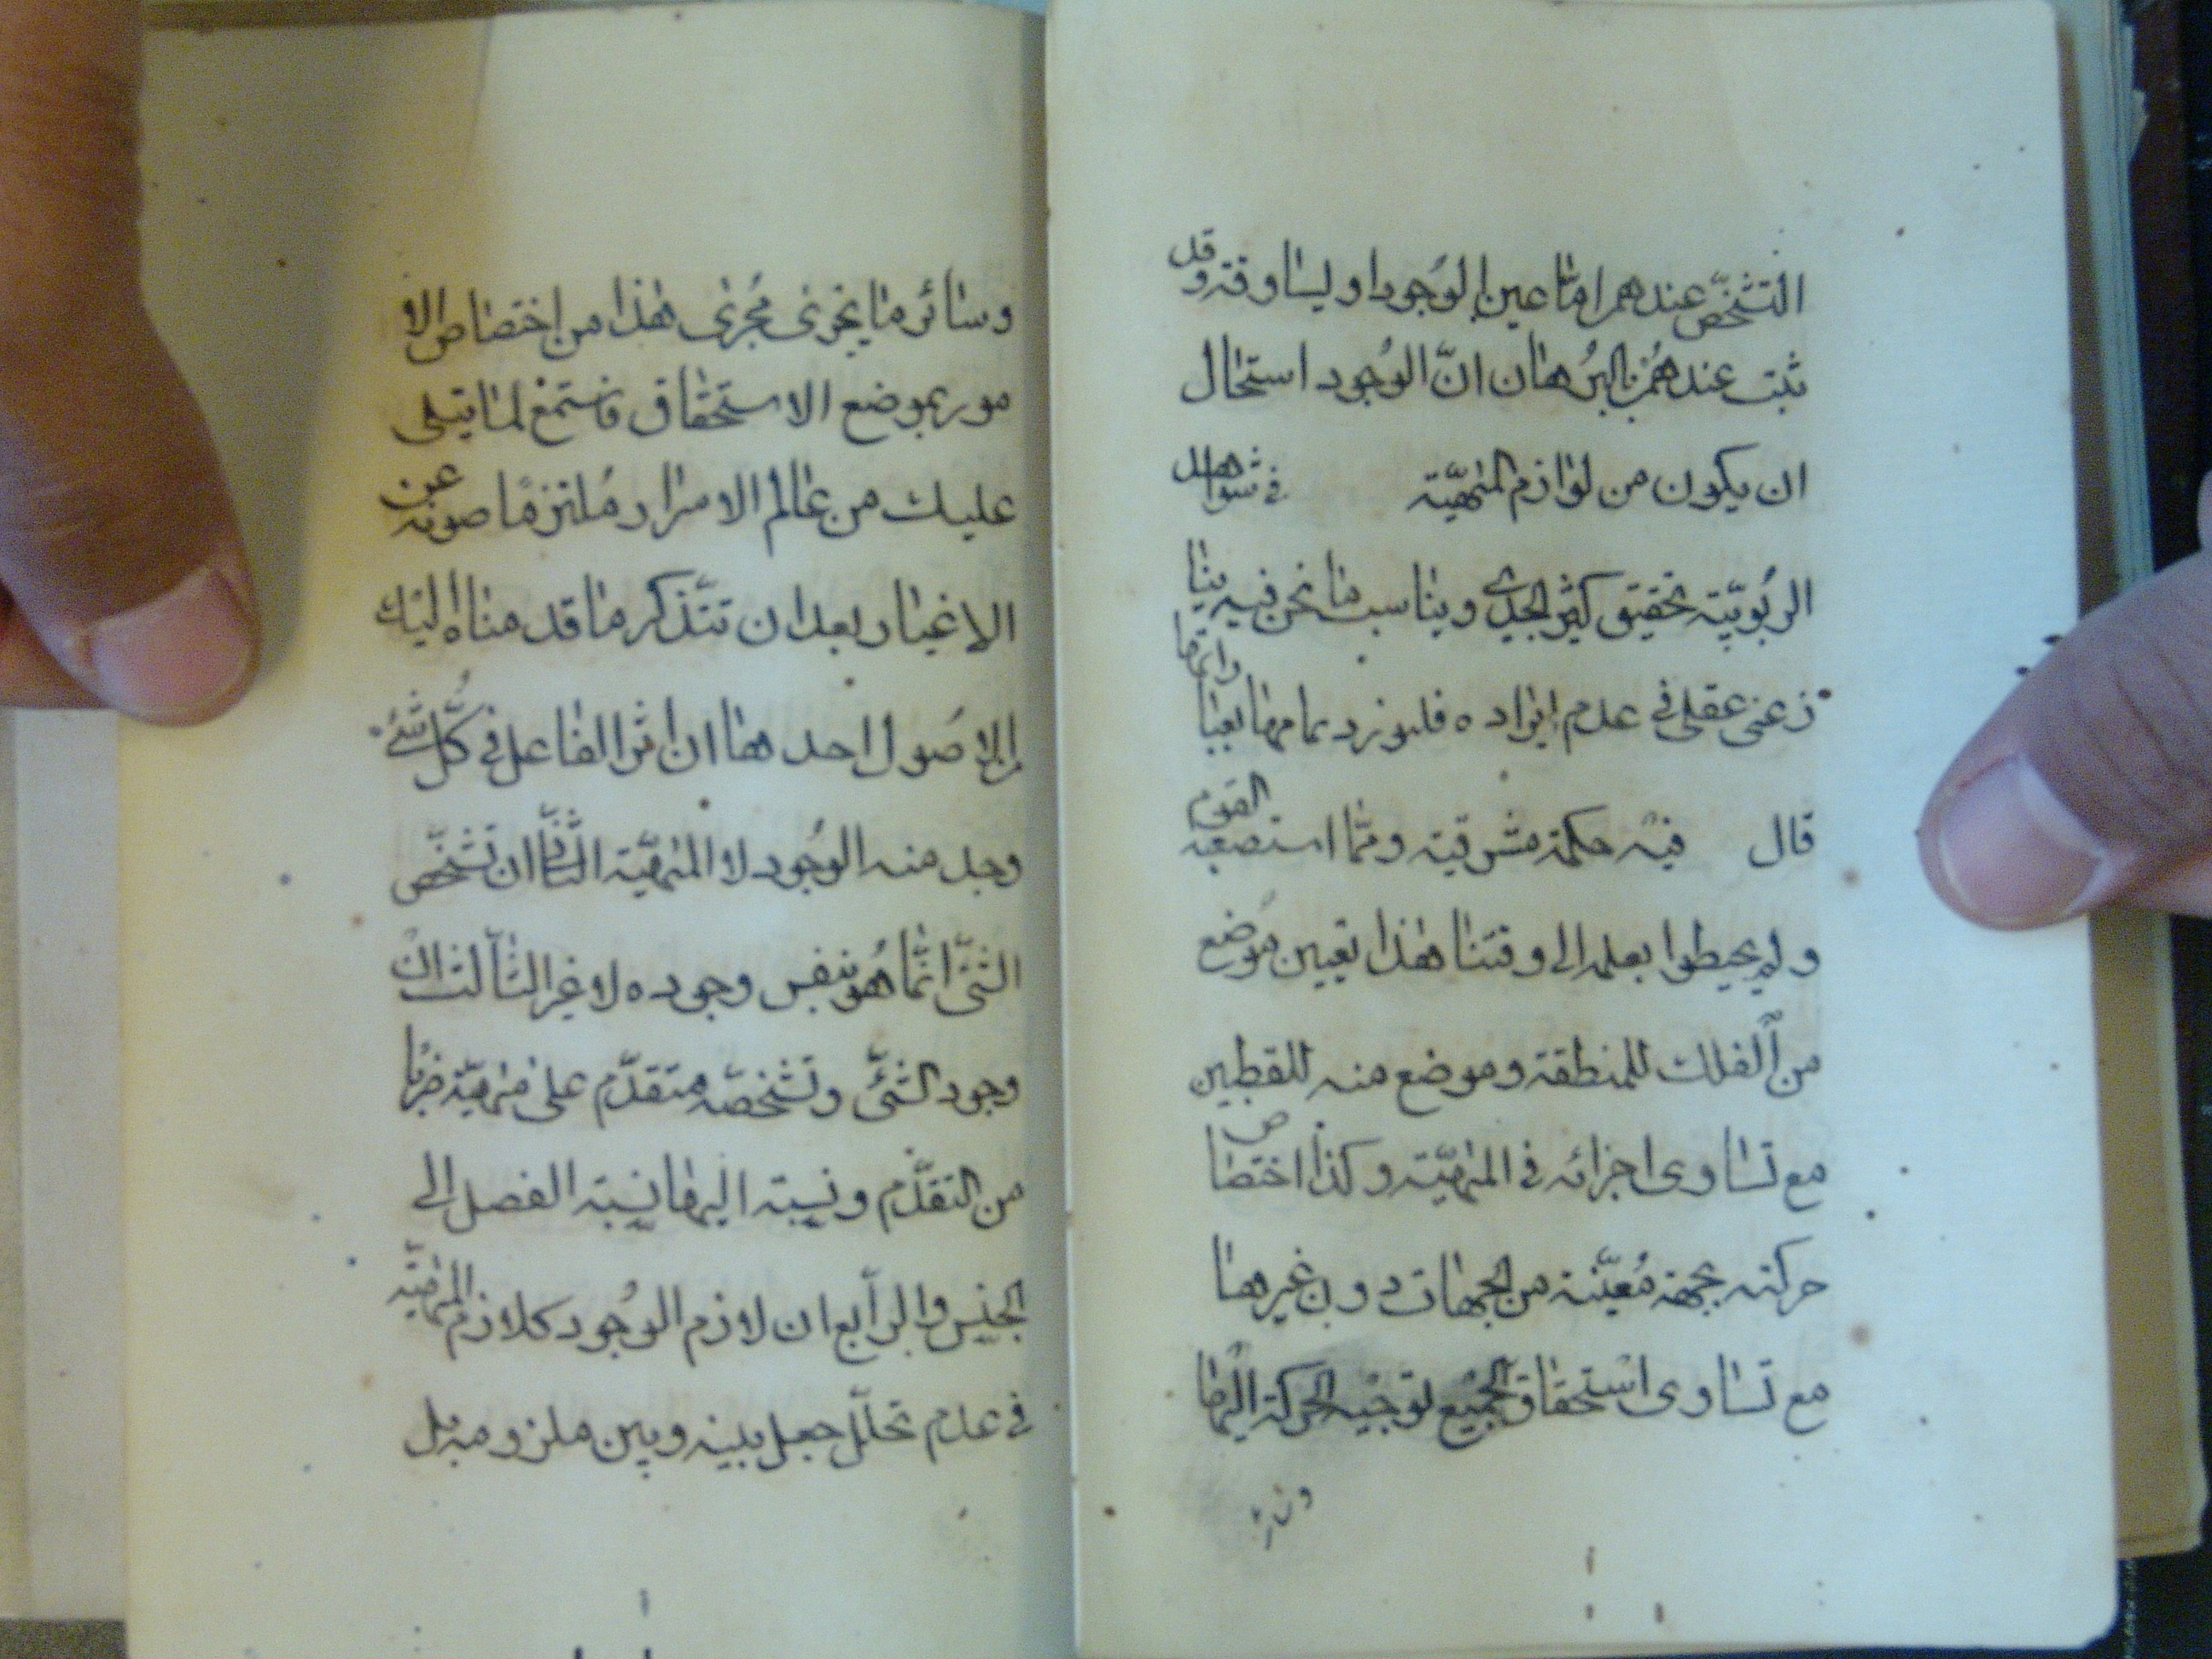 التشخّص عندهم امّا عين الوجود او يساوقه وقد
ثبت عندهم بالبرهان انّ الوجود استحال
ان يكون من لوازم المهيّة في شواهد
الربوبيّة تحقيق كثير الجدوى ويناسب ما نحن فيه ينا
زعنى عقلى فى عدم ايراده فلنورد بما مها بعبا
قال فيه حكمة مشرقية وممّا استصعبه القوم
ولم يحيطوا بعلمه الى وقتنا هذا تعيين موضع
من الفلك للمنطقة وموضع منه للقطبين
مع تساوى اجزائه فى المهيّة وكذا اختصا ص
حركته بجهة مُعيّنة من الجهات دون غيرها
مع تساوى استحقاق الجميع لتوجيه الحركة اليها
وسائر ما يجرى مُجرى هذا من اختصاص الا
مور بموضع الاستحقاق فاستمع لما يتلى
عليك من عالم الاسرار مُلتزمًا صونه عن
الاغيار بعد ان تتذكر ما قدمناه اليك
من الاصول احدها ان اثر الفاعل فى كلّ شئ
وجد منه الوجود لا المهيّة الثانى ان تشخّص
الشئ انّما هو بنفس وجوده لا غير الثالث ان
وجود الشئ وتشخصّه متقدّم على مهيّة ضربا
من التقدّم ونسبته اليها نسبة الفصل الى
الجنس والرابع ان لازم الوجود كلازم المهيّة
فى عدم تخلّل جعل بينه وبين ملزومه بل